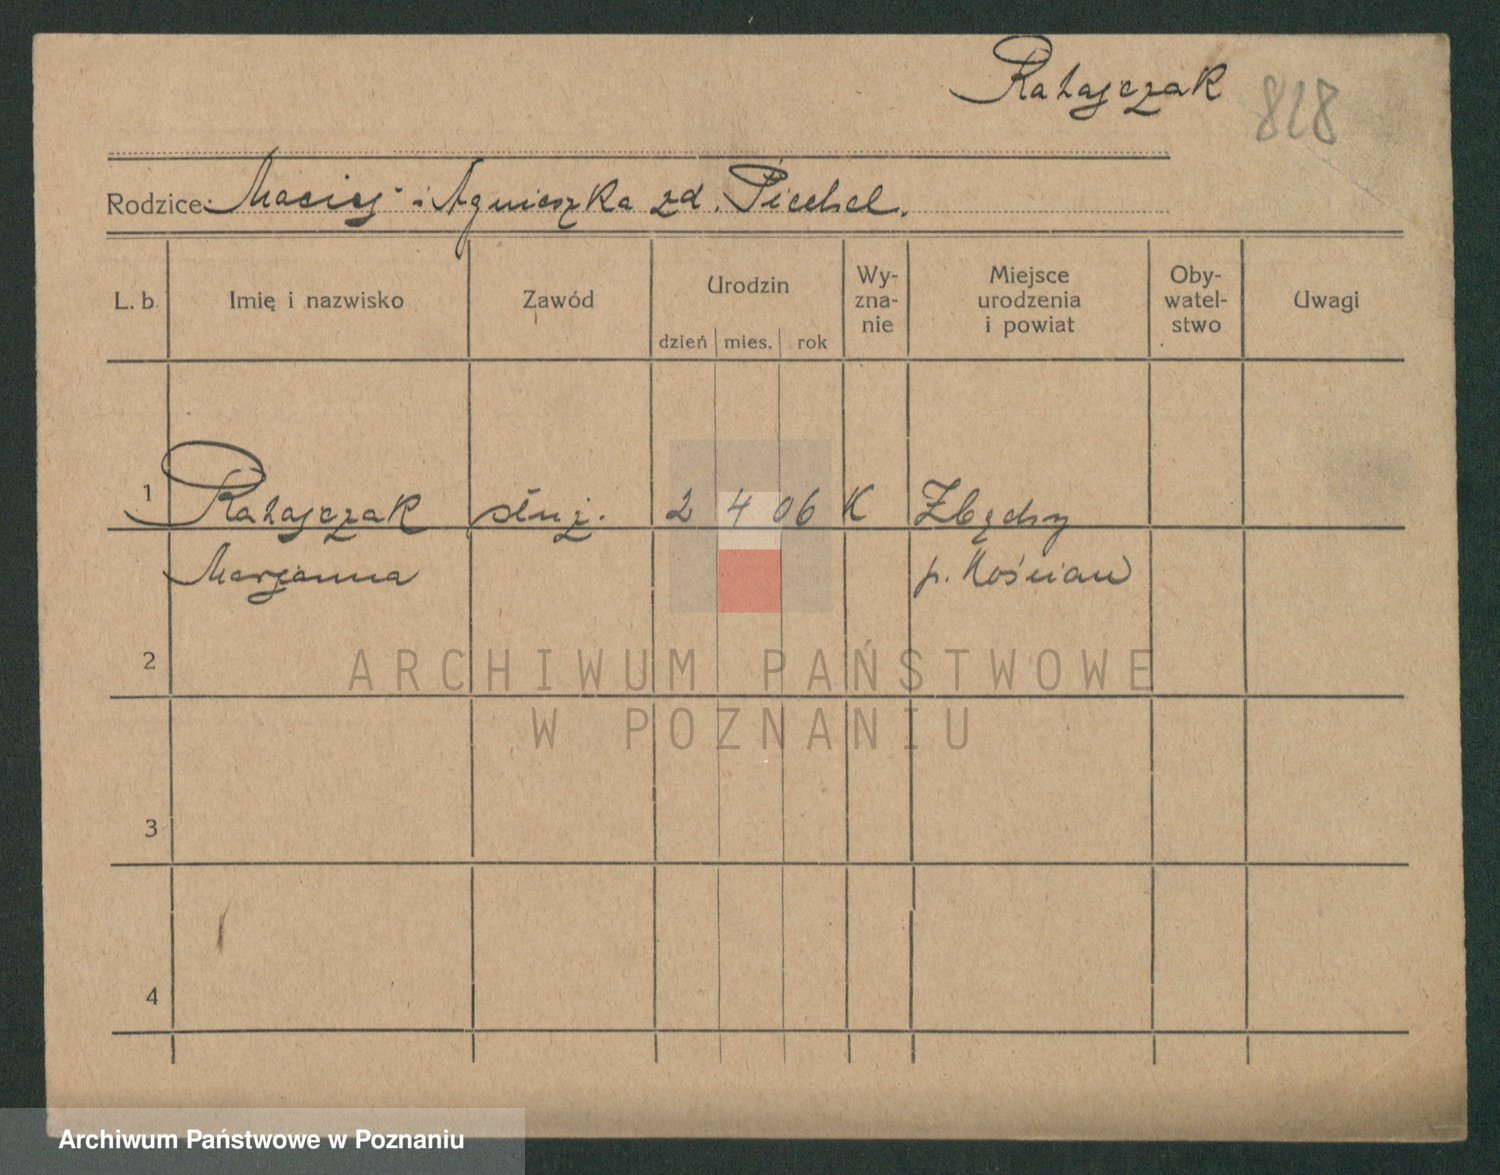 Ratajczak 828
Rodzice: Maciej i Agnieszka zd. Piechel.
L. b. Imię i nazwisko Zawód Urodzin dzień mies. rok Wy-zna-nie Miejsce urodzenia i powiat Oby-watel-stwo Uwagi
1 Ratajczak służ. 2 4 06 K Zbęchy
Marjanna p. Kościan
2
ARCHIWUM PAŃSTWOWE
W POZNANIU
3
4
Archiwum Państwowe w Poznaniu